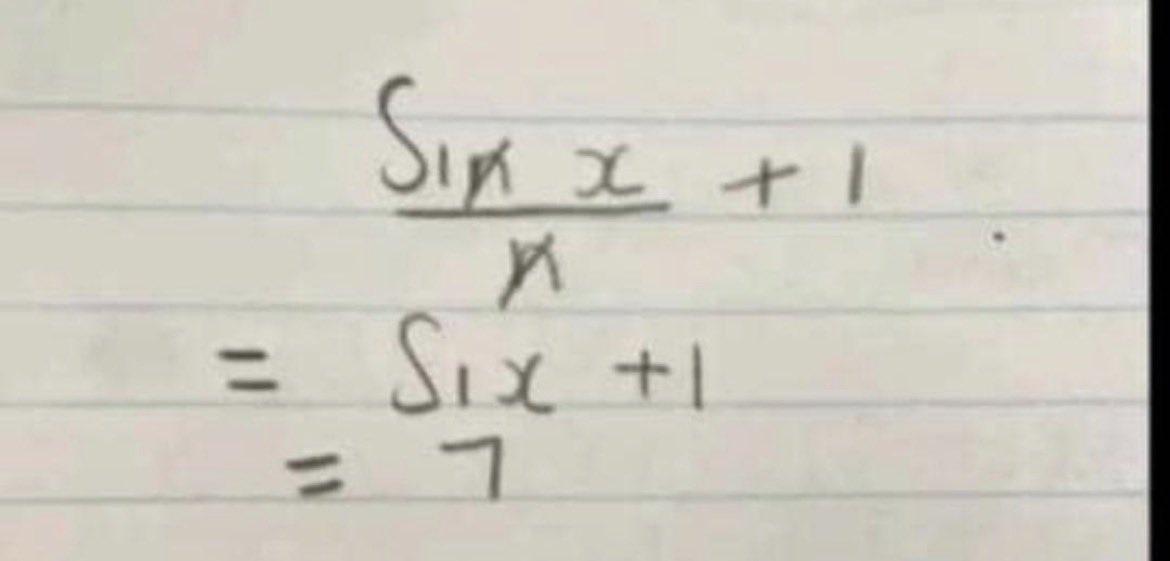 Sin x + 1
n
= Six + 1
= 7